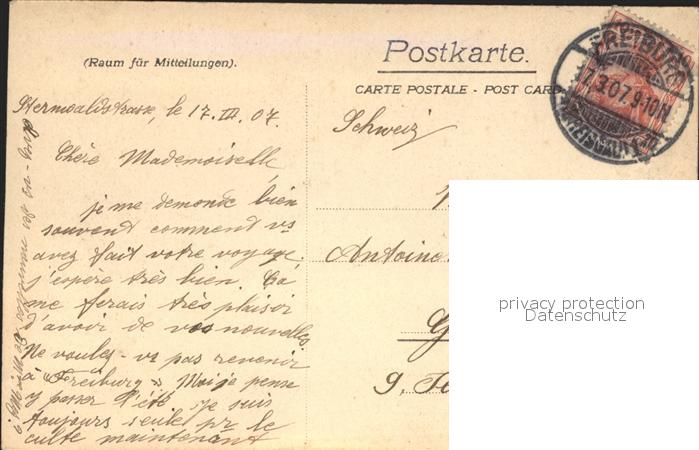 (Raum für Mitteilungen).
Postkarte.
CARTE POSTALE - POST CARD
Sternwaldstrasse, le 17. III. 07.
Chère Mademoiselle
je me demande bien
souvent comment vs
avez fait votre voyage.
j'espère très bien. Ça
me ferais très plaisir
d'avoir de vos nouvelles
Ne voulez-vs pas revenir
à Freiburg? Moi je pense
y passer l'été. je suis
toujours seule pr le
culte maintenant
Schweiz
Antoine
G
9,
FREIBURG
7.3.07. 9-10N
privacy protection
Datenschutz